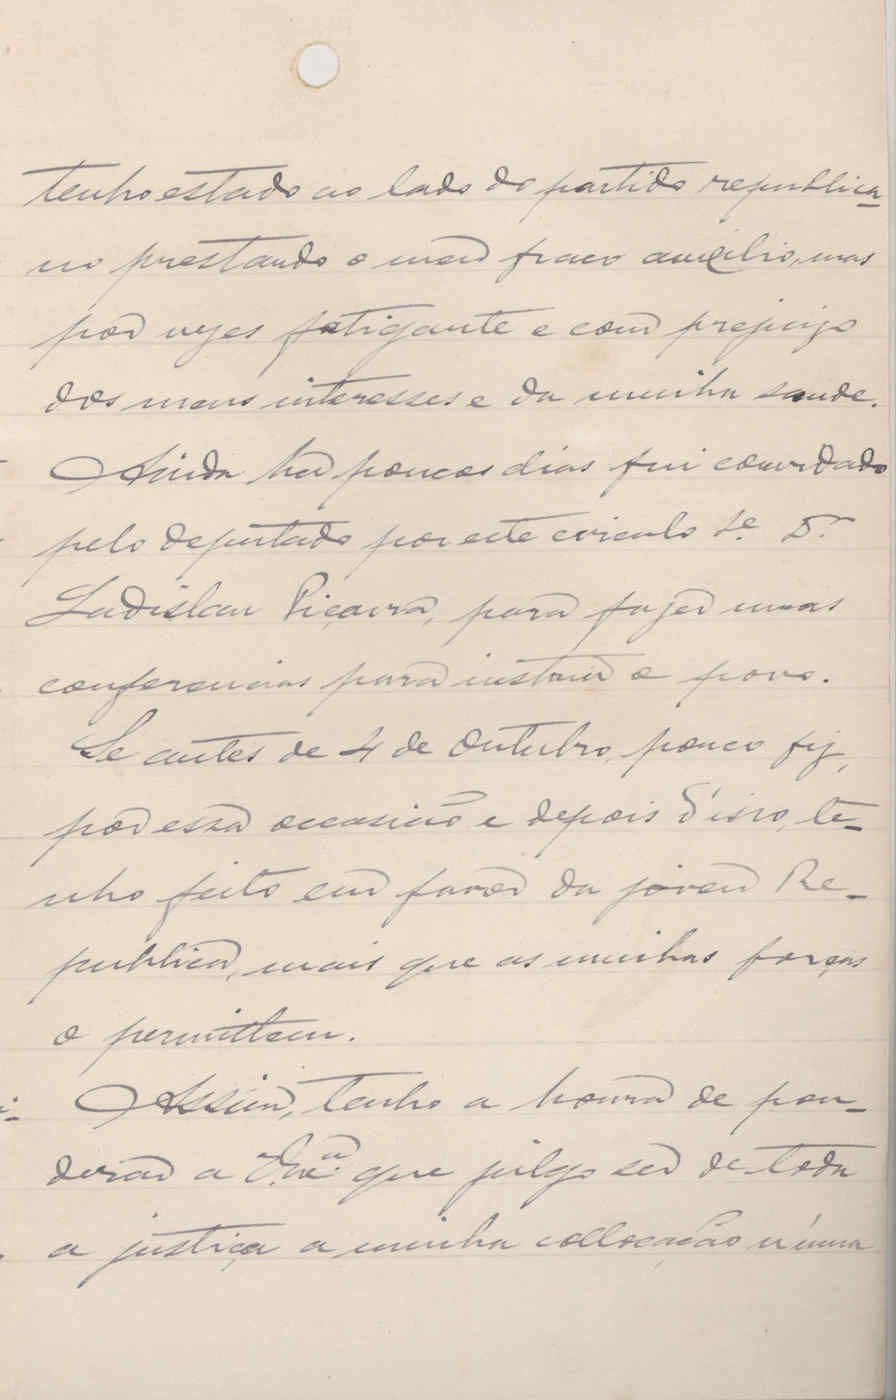 tenho estado ao lado do partido republica-
no prestando o meu fraco auxilio, mas
por vezes fatigante e com prejuizo
dos meus interesses e da minha saude.
Ainda ha poucos dias fui convidado
pelo deputado por este circulo Sr. Dr.
Ladislau Piçarra, para fazer umas
conferencias para instruir o povo.
Se antes de 4 de Outubro, pouco fiz,
por essa occasião e depois d'isso, te-
nho feito em favor da joven Re-
publica, mais que as minhas forças
o permittem.
Assim, tenho a honra de pon-
derar a V. Exa. que julgo ser de toda
a justiça a minha collocação n'uma